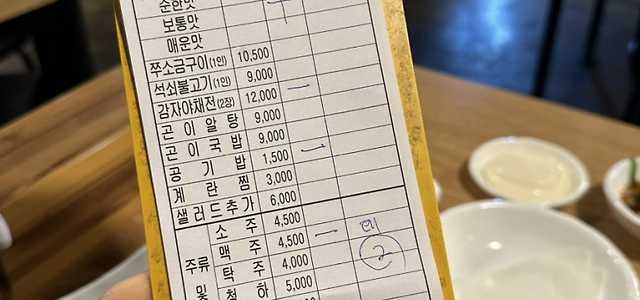 순한맛
보통맛
매운맛
쭈소금구이(1인) 10,500
석쇠불고기(1인) 9,000
감자야채전(2장) 12,000 一
곤이알탕 9,000
곤이국밥 9,000
공기밥 1,500 一
계란찜 3,000
샐러드추가 6,000
주류 및
소주 4,500
맥주 4,500 一 테 ②
탁주 4,000
청하 5,000